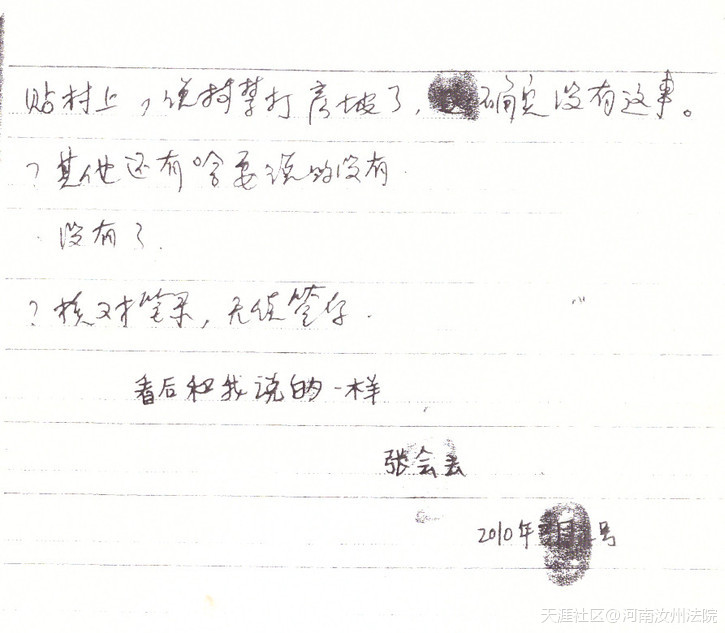 贴村上，说村禁打房坡了，确实没有这事。
？其他还有啥要说的没有.
. 没有了.
？核对笔录，无误签字.
看后和我说的一样
张会去
2010年 号
天涯社区@河南汝州法院